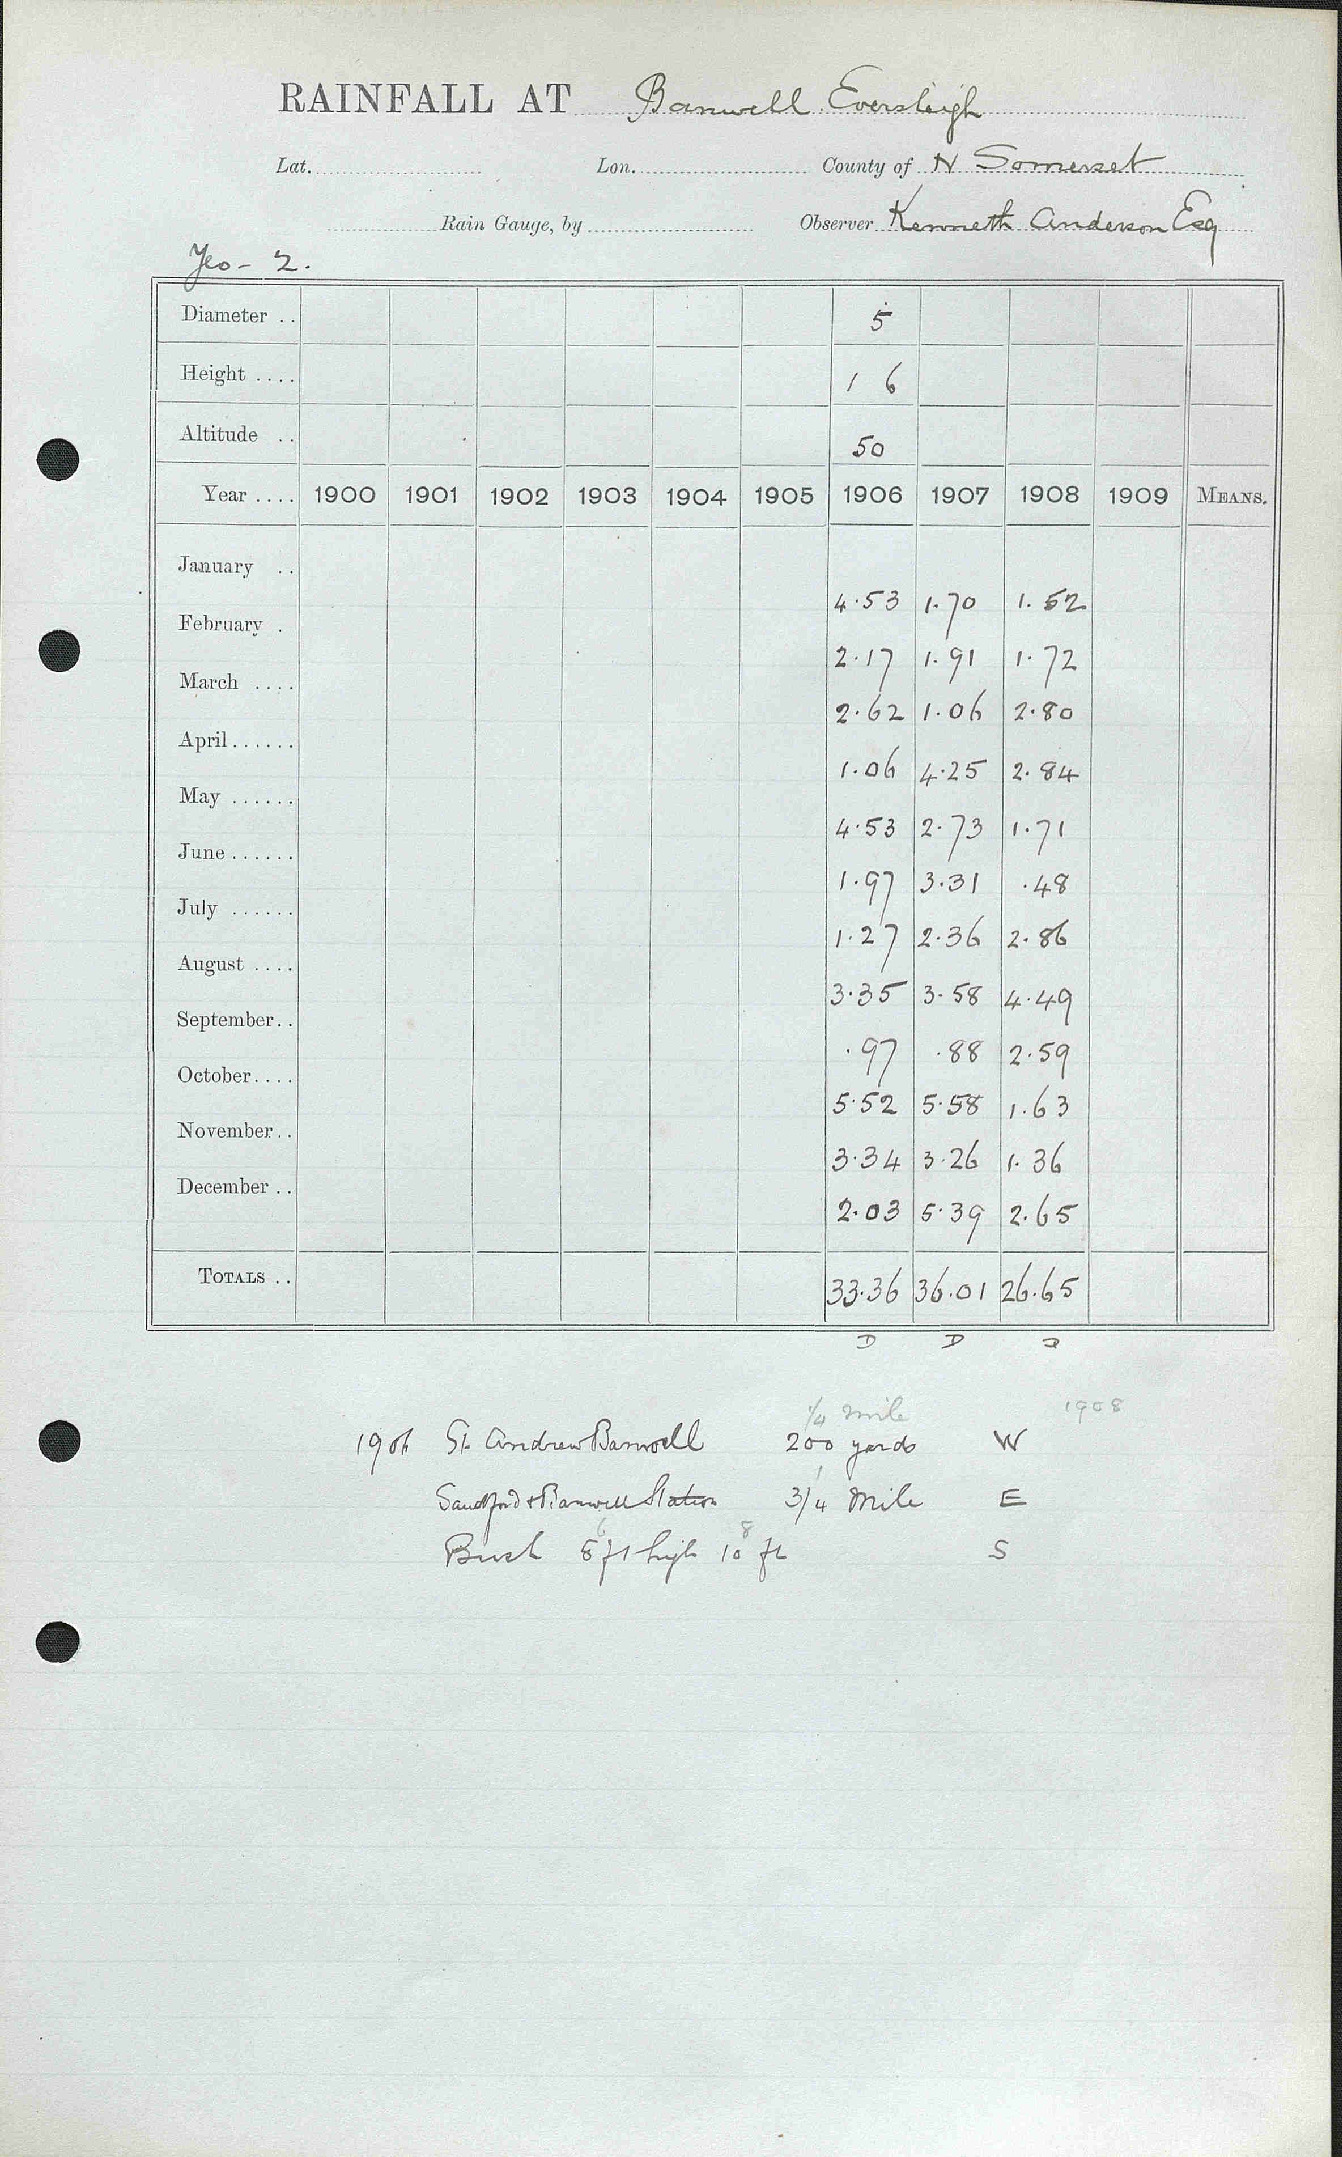 RAINFALL AT Banwell Eversleigh
Lat. Lon. County of N Somerset
Rain Gauge, by Observer Kenneth Anderson Esq
Yeo - 2.
Diameter .. 5
Height .... 1 6
Altitude .. 50
Year .... 1900 1901 1902 1903 1904 1905 1906 1907 1908 1909 MEANS.
January .. 4.53 1.70 1.52
February . 2.17 1.91 1.72
March .... 2.62 1.06 2.80
April...... 1.06 4.25 2.84
May ...... 4.53 2.73 1.71
June...... 1.97 3.31 .48
July ...... 1.27 2.36 2.86
August .... 3.35 3.58 4.49
September.. .97 .88 2.59
October.... 5.52 5.58 1.63
November.. 3.34 3.26 1.36
December .. 2.03 5.39 2.65
TOTALS .. 33.36 36.01 26.65
D D D
1/4 mile 1908
1906 St. Andrew Banwell 200 yards W
Sandford & Banwell Station 3/4 Mile E
6 8
Bush 8 ft high 10 ft S